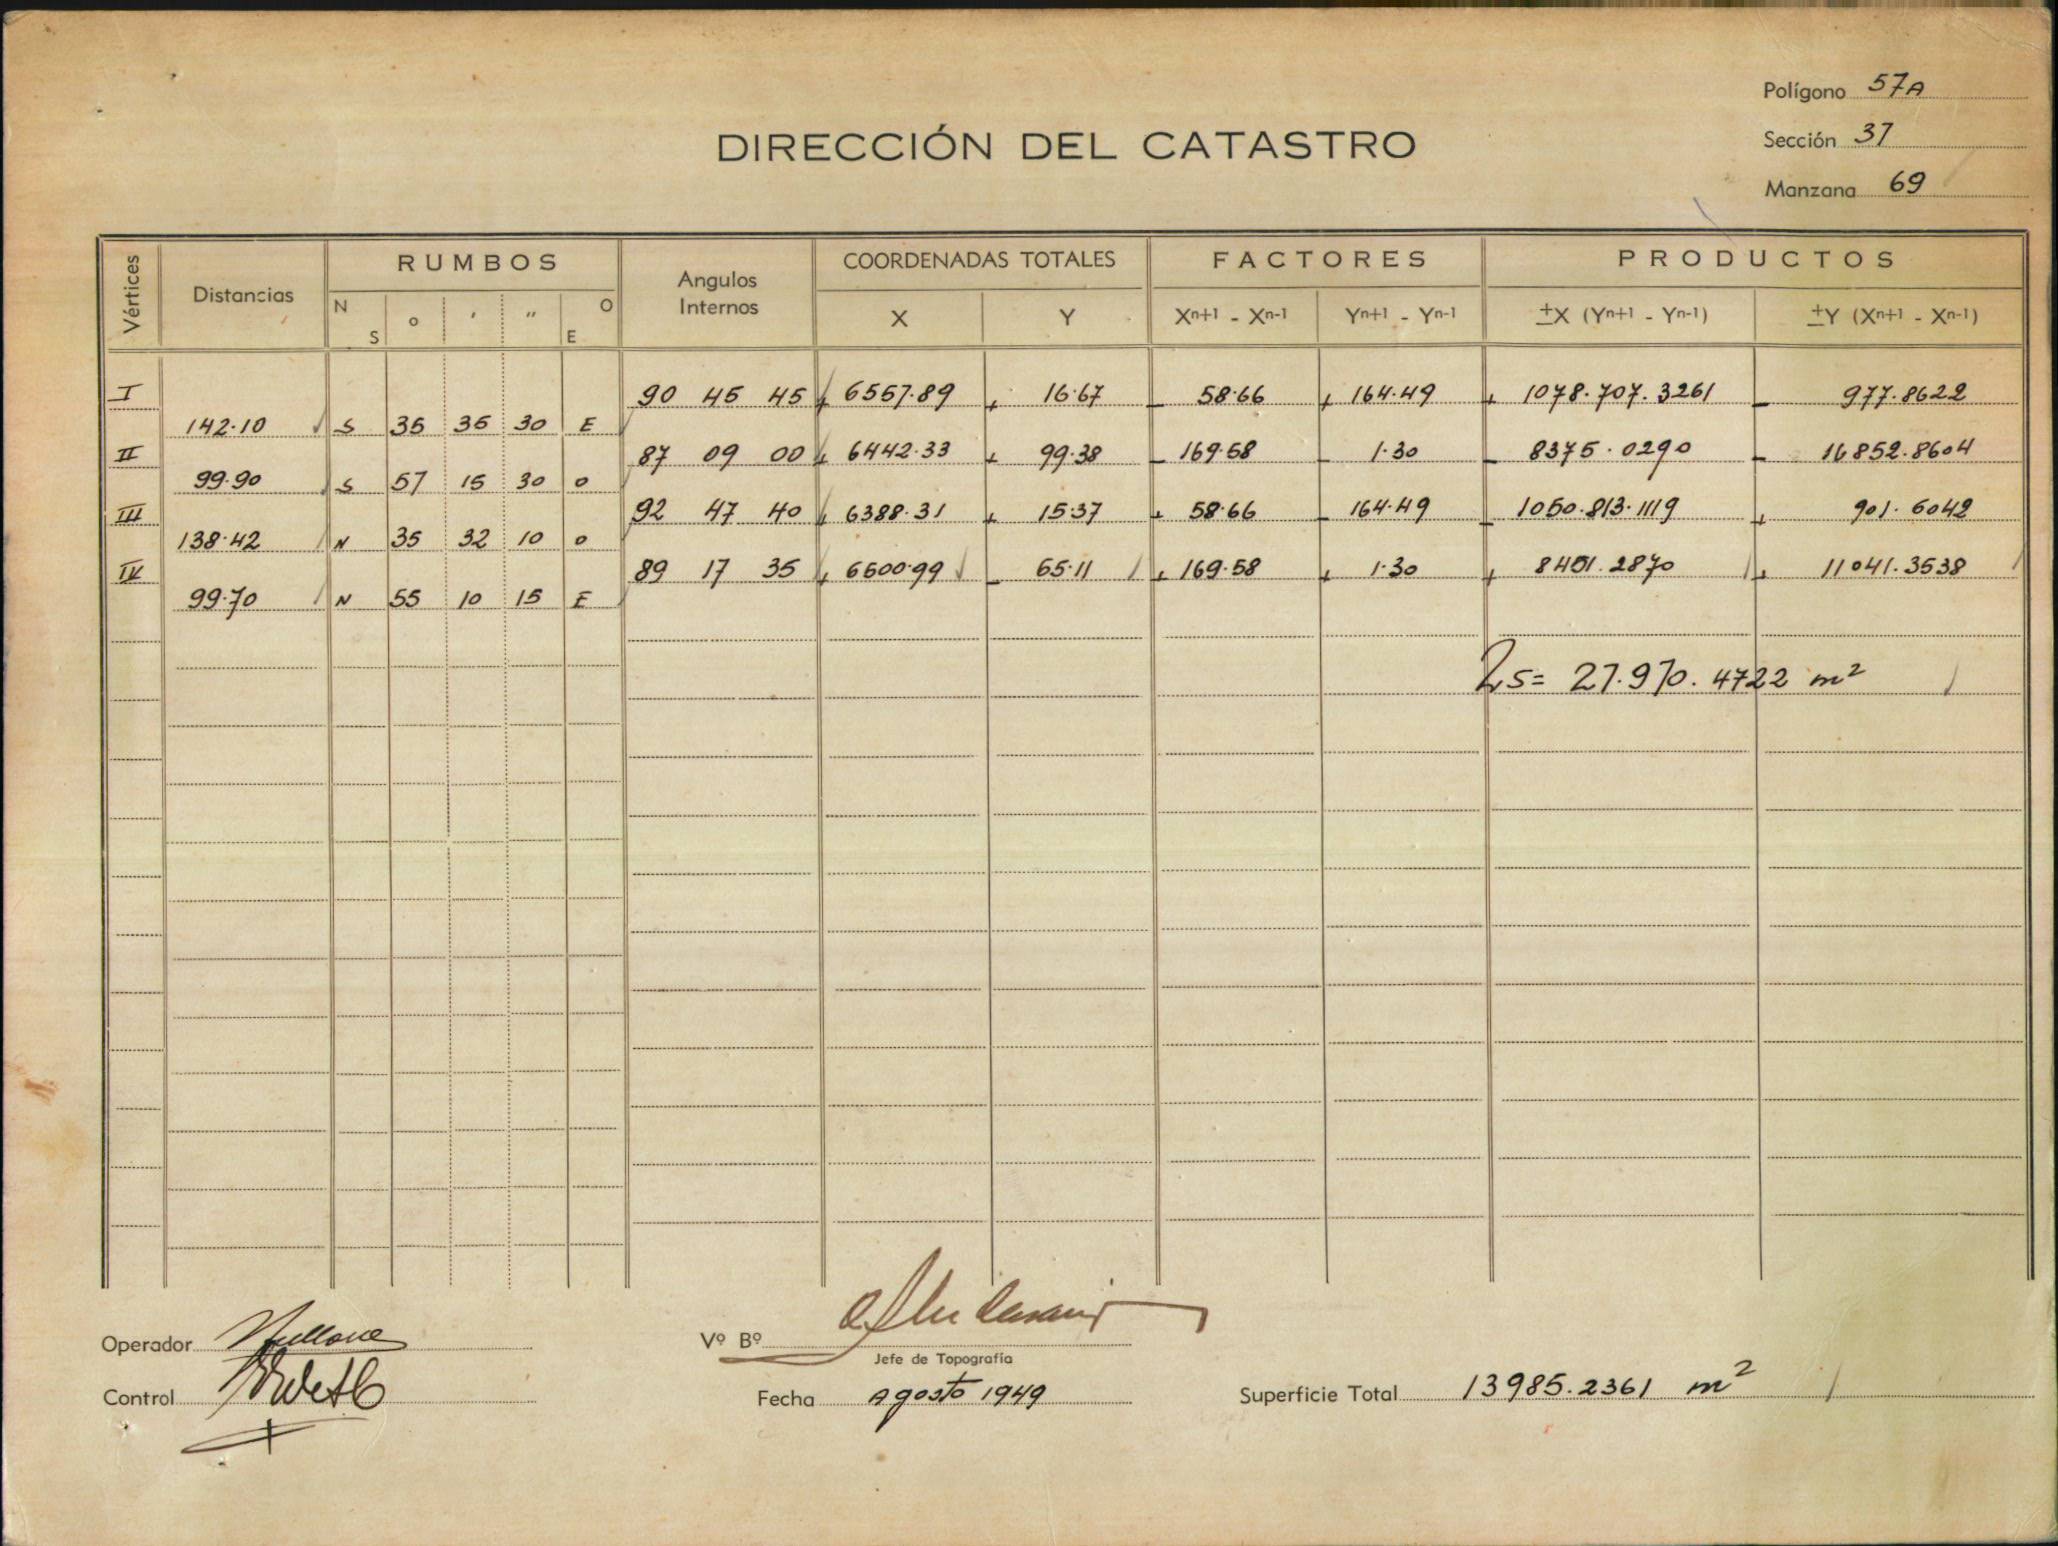 Polígono 57A
Sección 37
DIRECCIÓN DEL CATASTRO
Manzana 69
Vértices
Distancias
RUMBOS
N S
o ' "
O E
Angulos
Internos
COORDENADAS TOTALES
X Y
FACTORES
Xn+1 - Xn-1 Yn+1 - Yn-1
PRODUCTOS
±X (Yn+1 - Yn-1) ±Y (Xn+1 - Xn-1)
I 90 45 45 + 6557.89 + 16.67 - 58.66 + 164.49 + 1078.707.3261 - 977.8622
142.10 S 35 35 30 E
II 87 09 00 + 6442.33 + 99.38 - 169.58 - 1.30 - 8375.0290 - 16852.8604
99.90 S 57 15 30 O
III 92 47 40 + 6388.31 + 15.37 + 58.66 - 164.49 - 1050.813.1119 + 901.6042
138.42 N 35 32 10 O
IV 89 17 35 + 6500.99 - 65.11 + 169.58 + 1.30 + 8451.2870 + 11041.3538
99.70 N 55 10 15 E
2S= 27.970.4722 m²
Operador
Vº Bº
Jefe de Topografía
Control
Fecha Agosto 1949
Superficie Total 13985.2361 m²